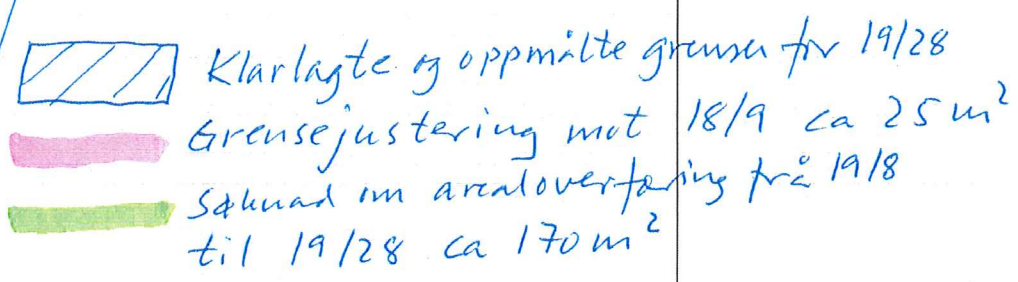 Klarlagte og oppmålte grenser for 19/28
Grensejustering mot 18/9 ca 25 m²
Søknad om arealoverføring frå 19/8
til 19/28 ca 170 m²